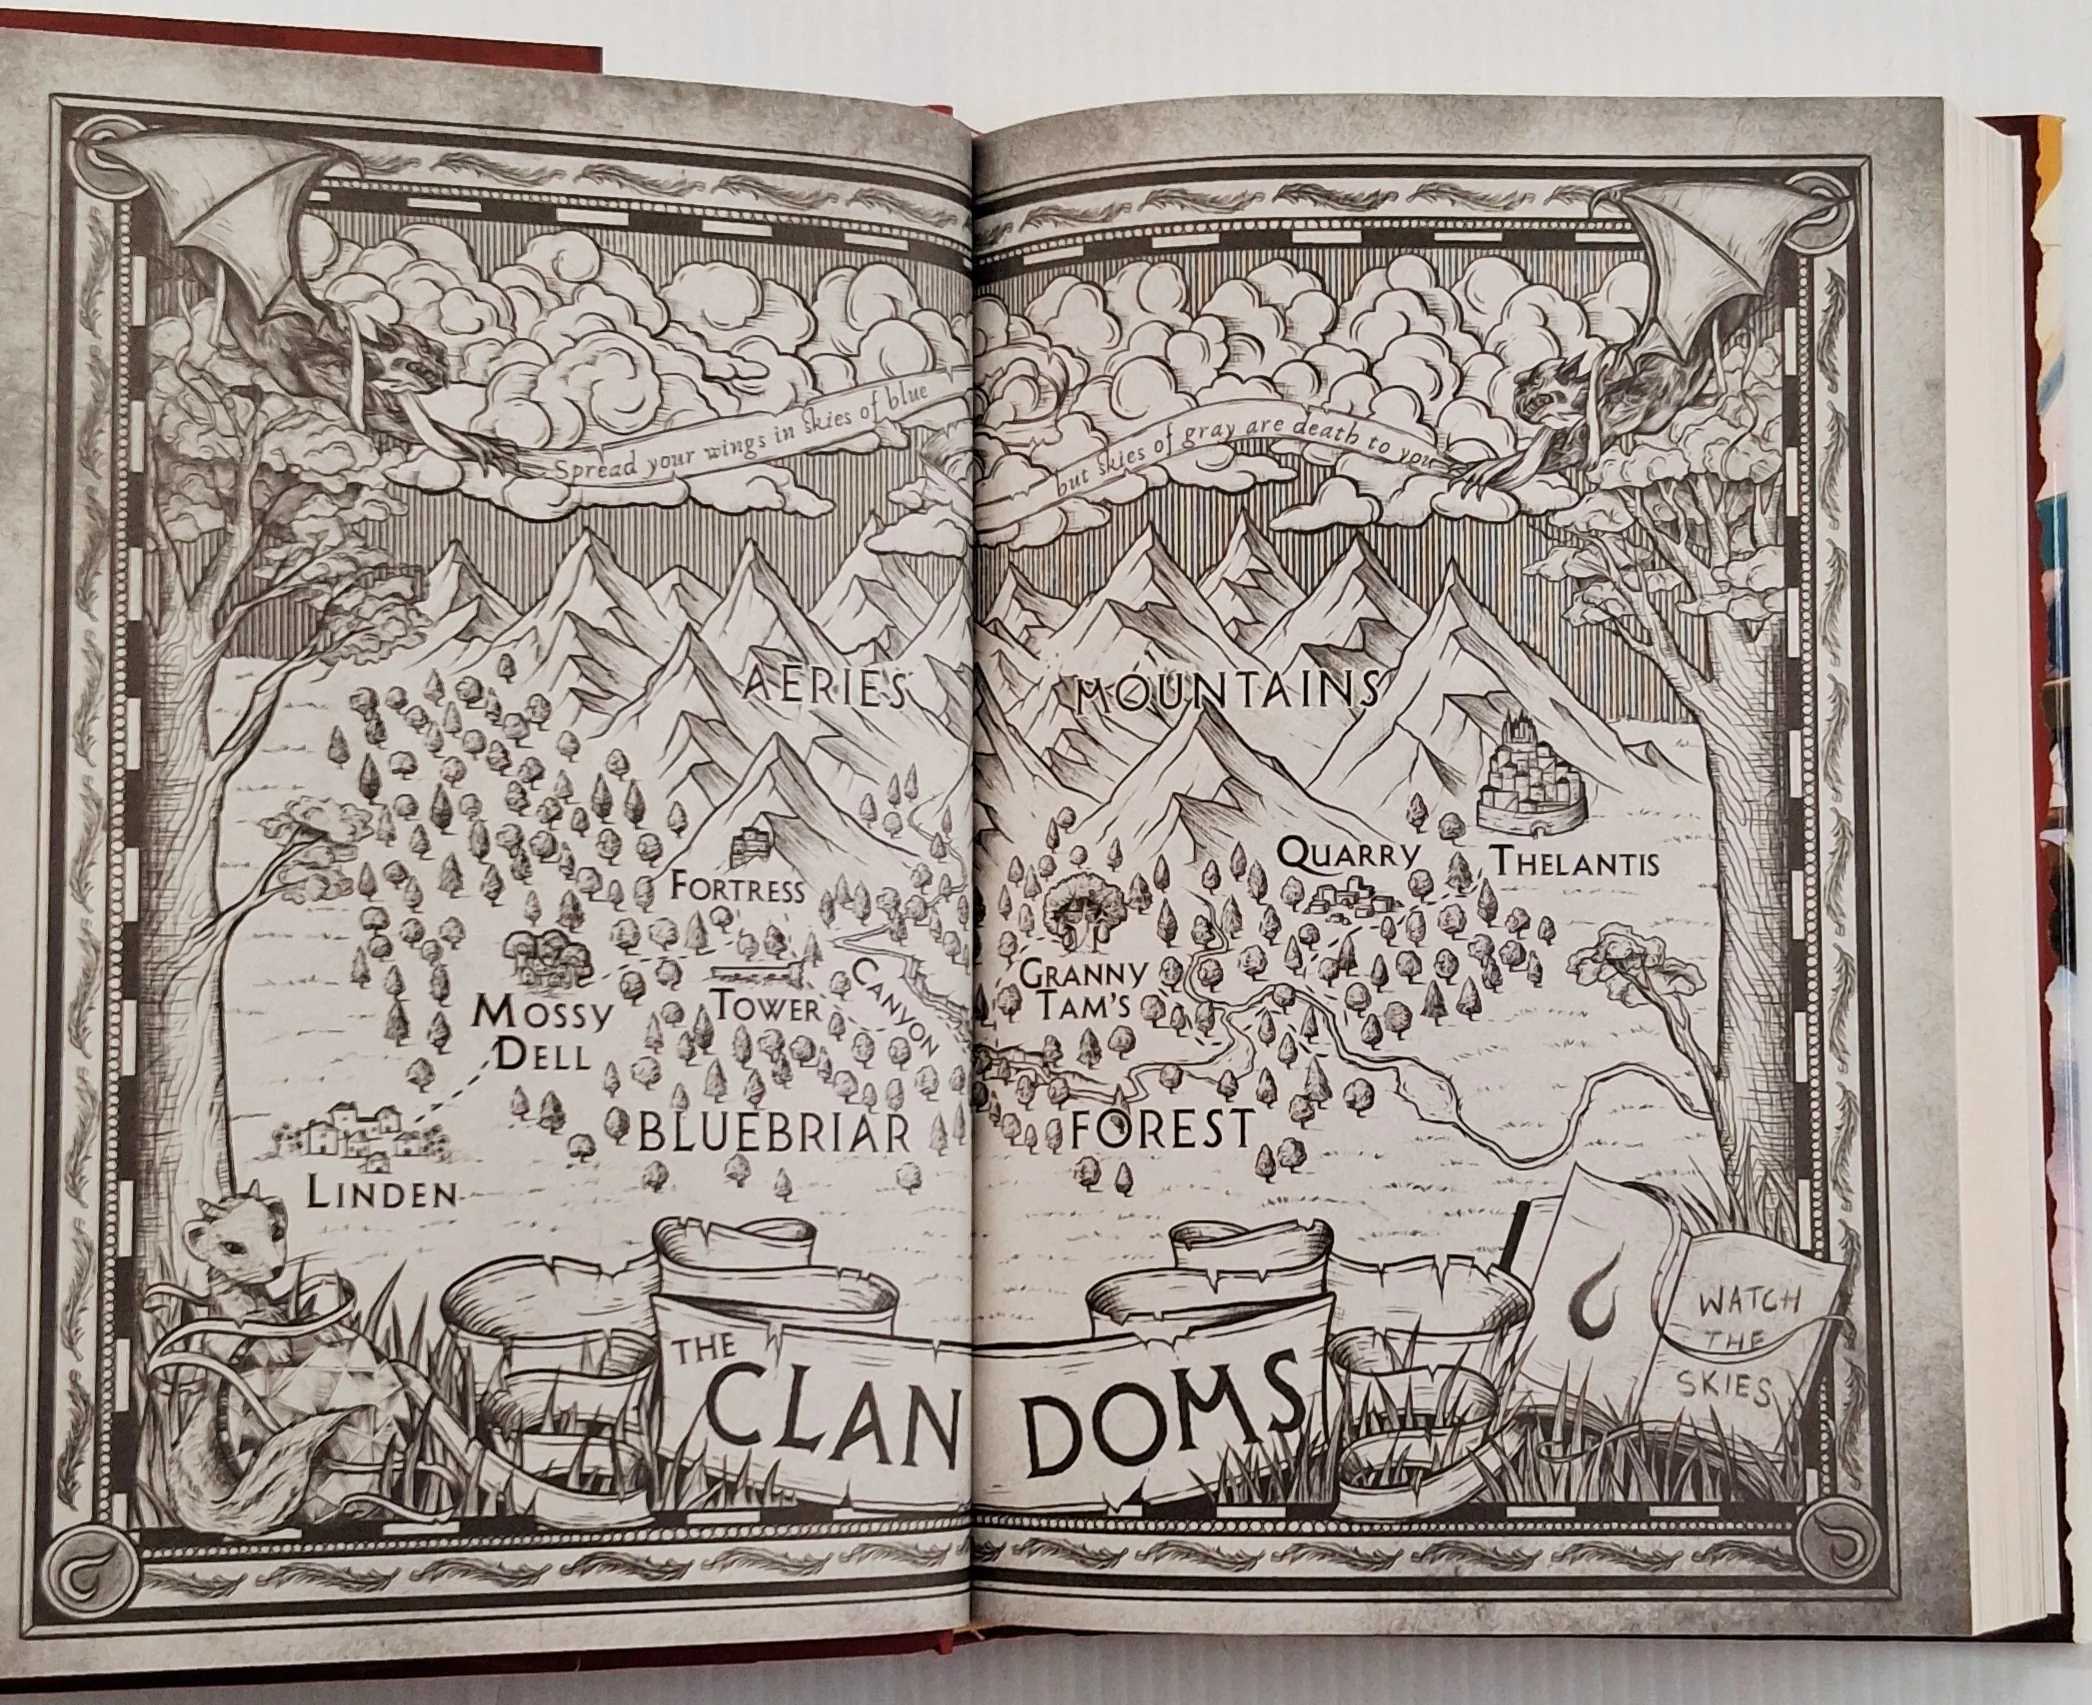 Spread your wings in skies of blue
but skies of gray are death to you
AERIES MOUNTAINS
QUARRY
THELANTIS
FORTRESS
GRANNY
TAM'S
CANYON
MOSSY
DELL
TOWER
BLUEBRIAR FOREST
LINDEN
WATCH
THE
SKIES
THE
CLAN DOMS